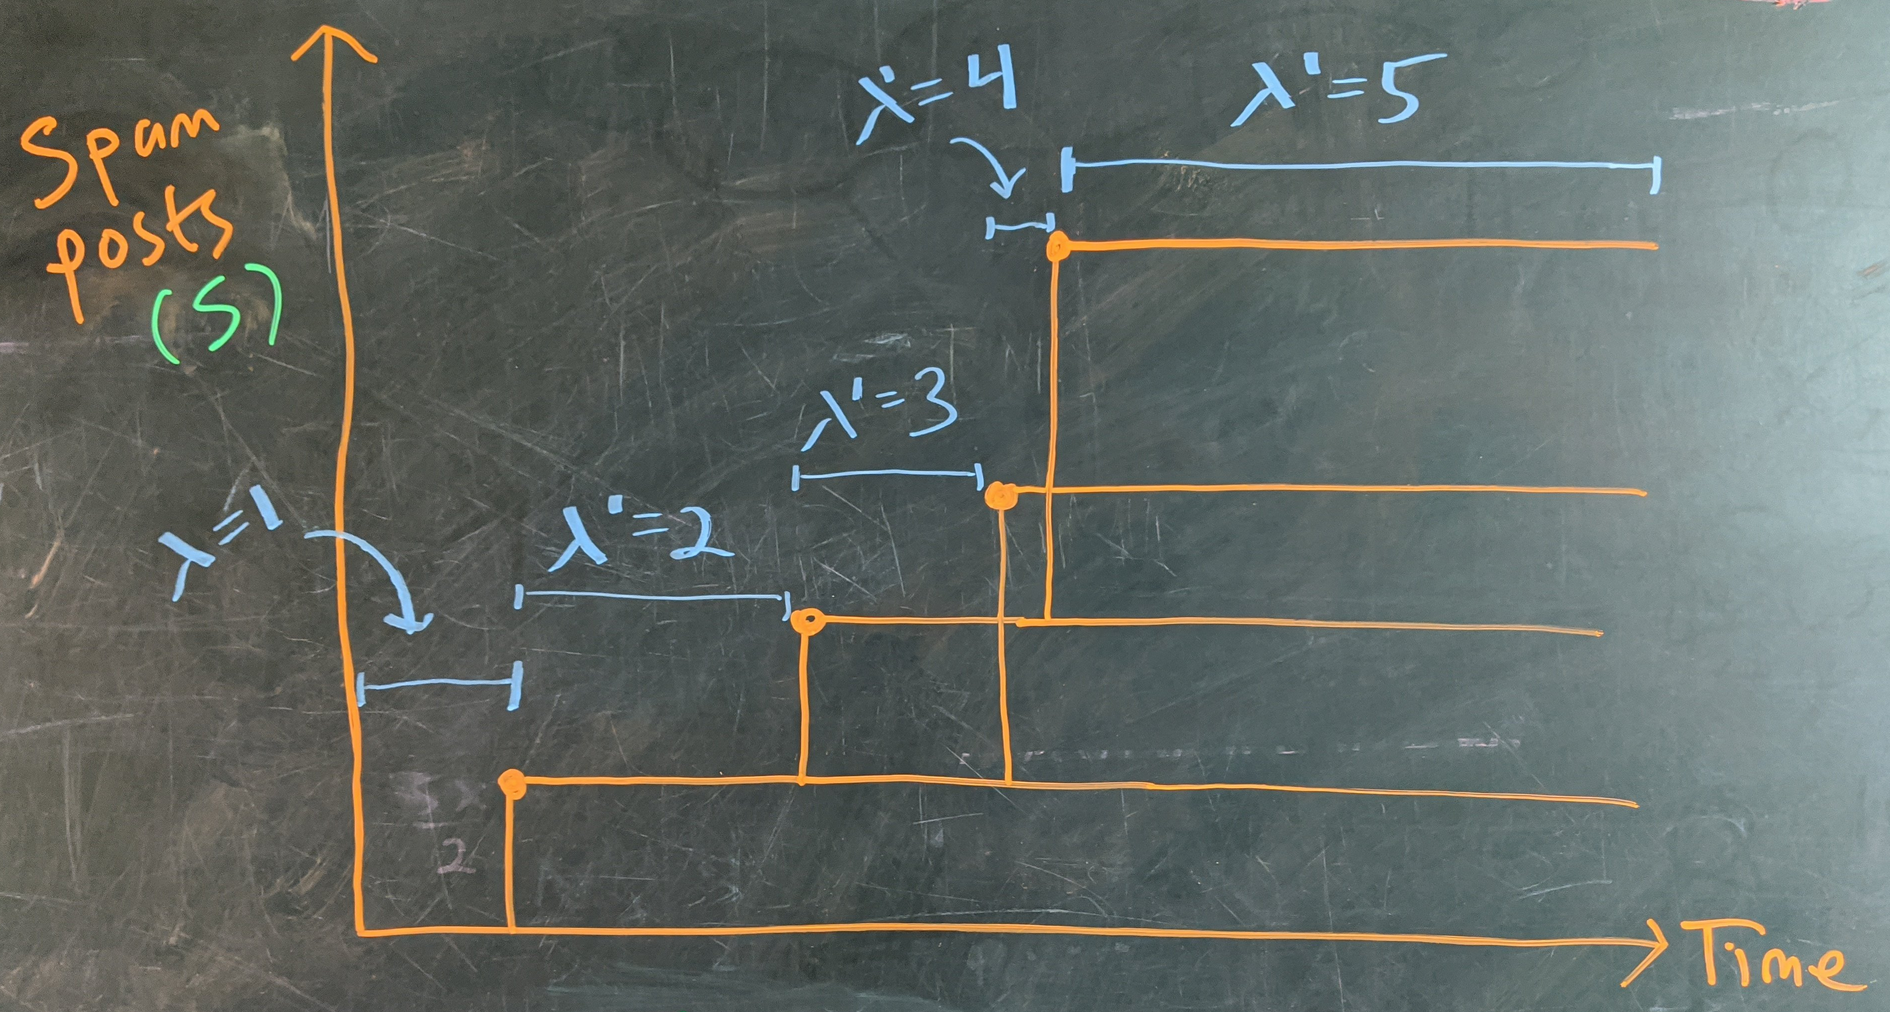 Spam
posts
(S)
λ=1
λ'=2
λ'=3
λ'=4
λ'=5
2
Time